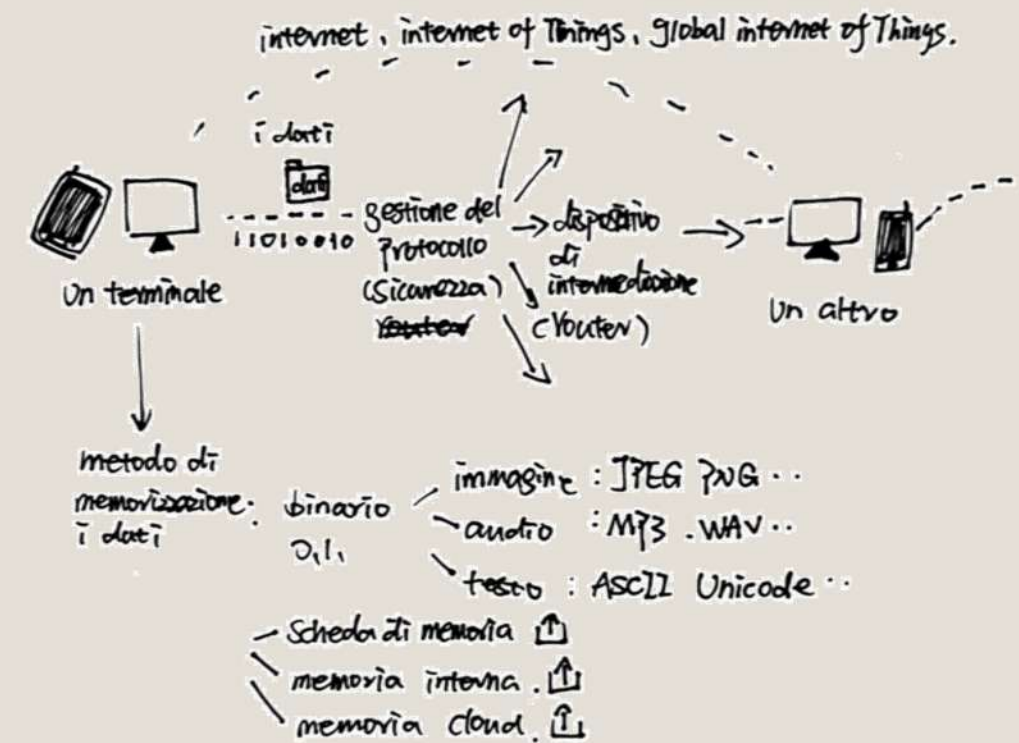 internet, internet of Things, global internet of Things.
i dati
dati
11010010
gestione del
Protocollo
(Sicurezza)
router
dispositivo
di
intermediazione
(router)
un terminale
un altro
metodo di
memorizzazione.
i dati
binario
0,1,
immagine : JPEG PNG ..
audio : MP3 .WAV ..
testo : ASCII Unicode ..
Scheda di memoria
memoria interna.
memoria cloud.